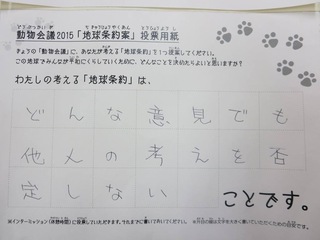 動物会議2015「地球条約案」投票用紙
きょうの「動物会議」に、あなたが考える「地球条約」を1つ提案してください。
この地球でみんなが平和にくらしていくために、どんなことを決めたらよいと思いますか?
わたしの考える「地球条約」は、
どんな意見でも
他人の考えを否
定しない
ことです。
※インターミッション(休憩時間)に投票していただきます。それまでに書いておいてください。